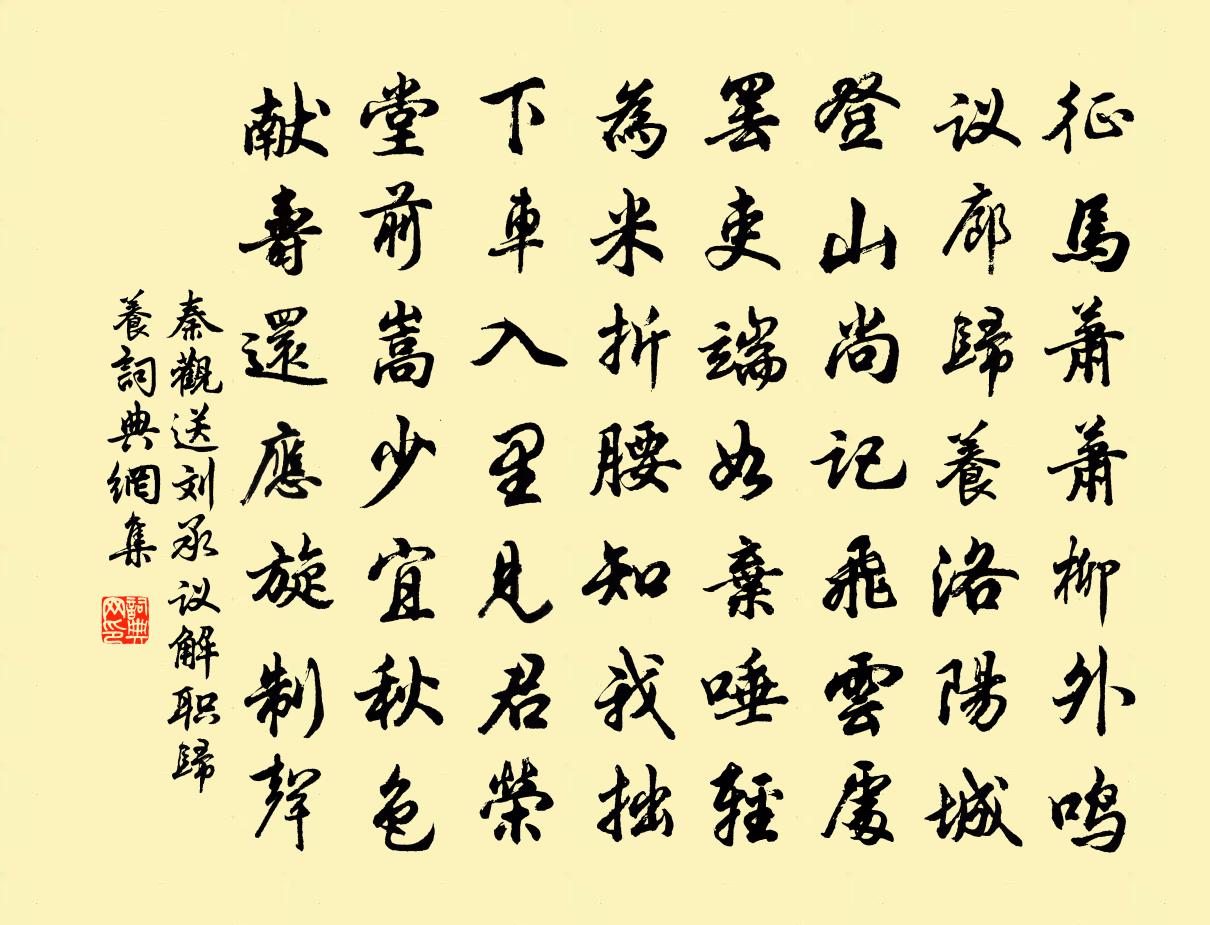 征馬萧萧柳外鳴
议廊歸養洛陽城
登山尚记飛雲處
罢吏端如棄唾輕
為米折腰知我拙
下車入里見君榮
堂前嵩少宜秋色
献壽還應旋制聲
秦觀送刘承议解职歸
養詞典網集
詞典网印